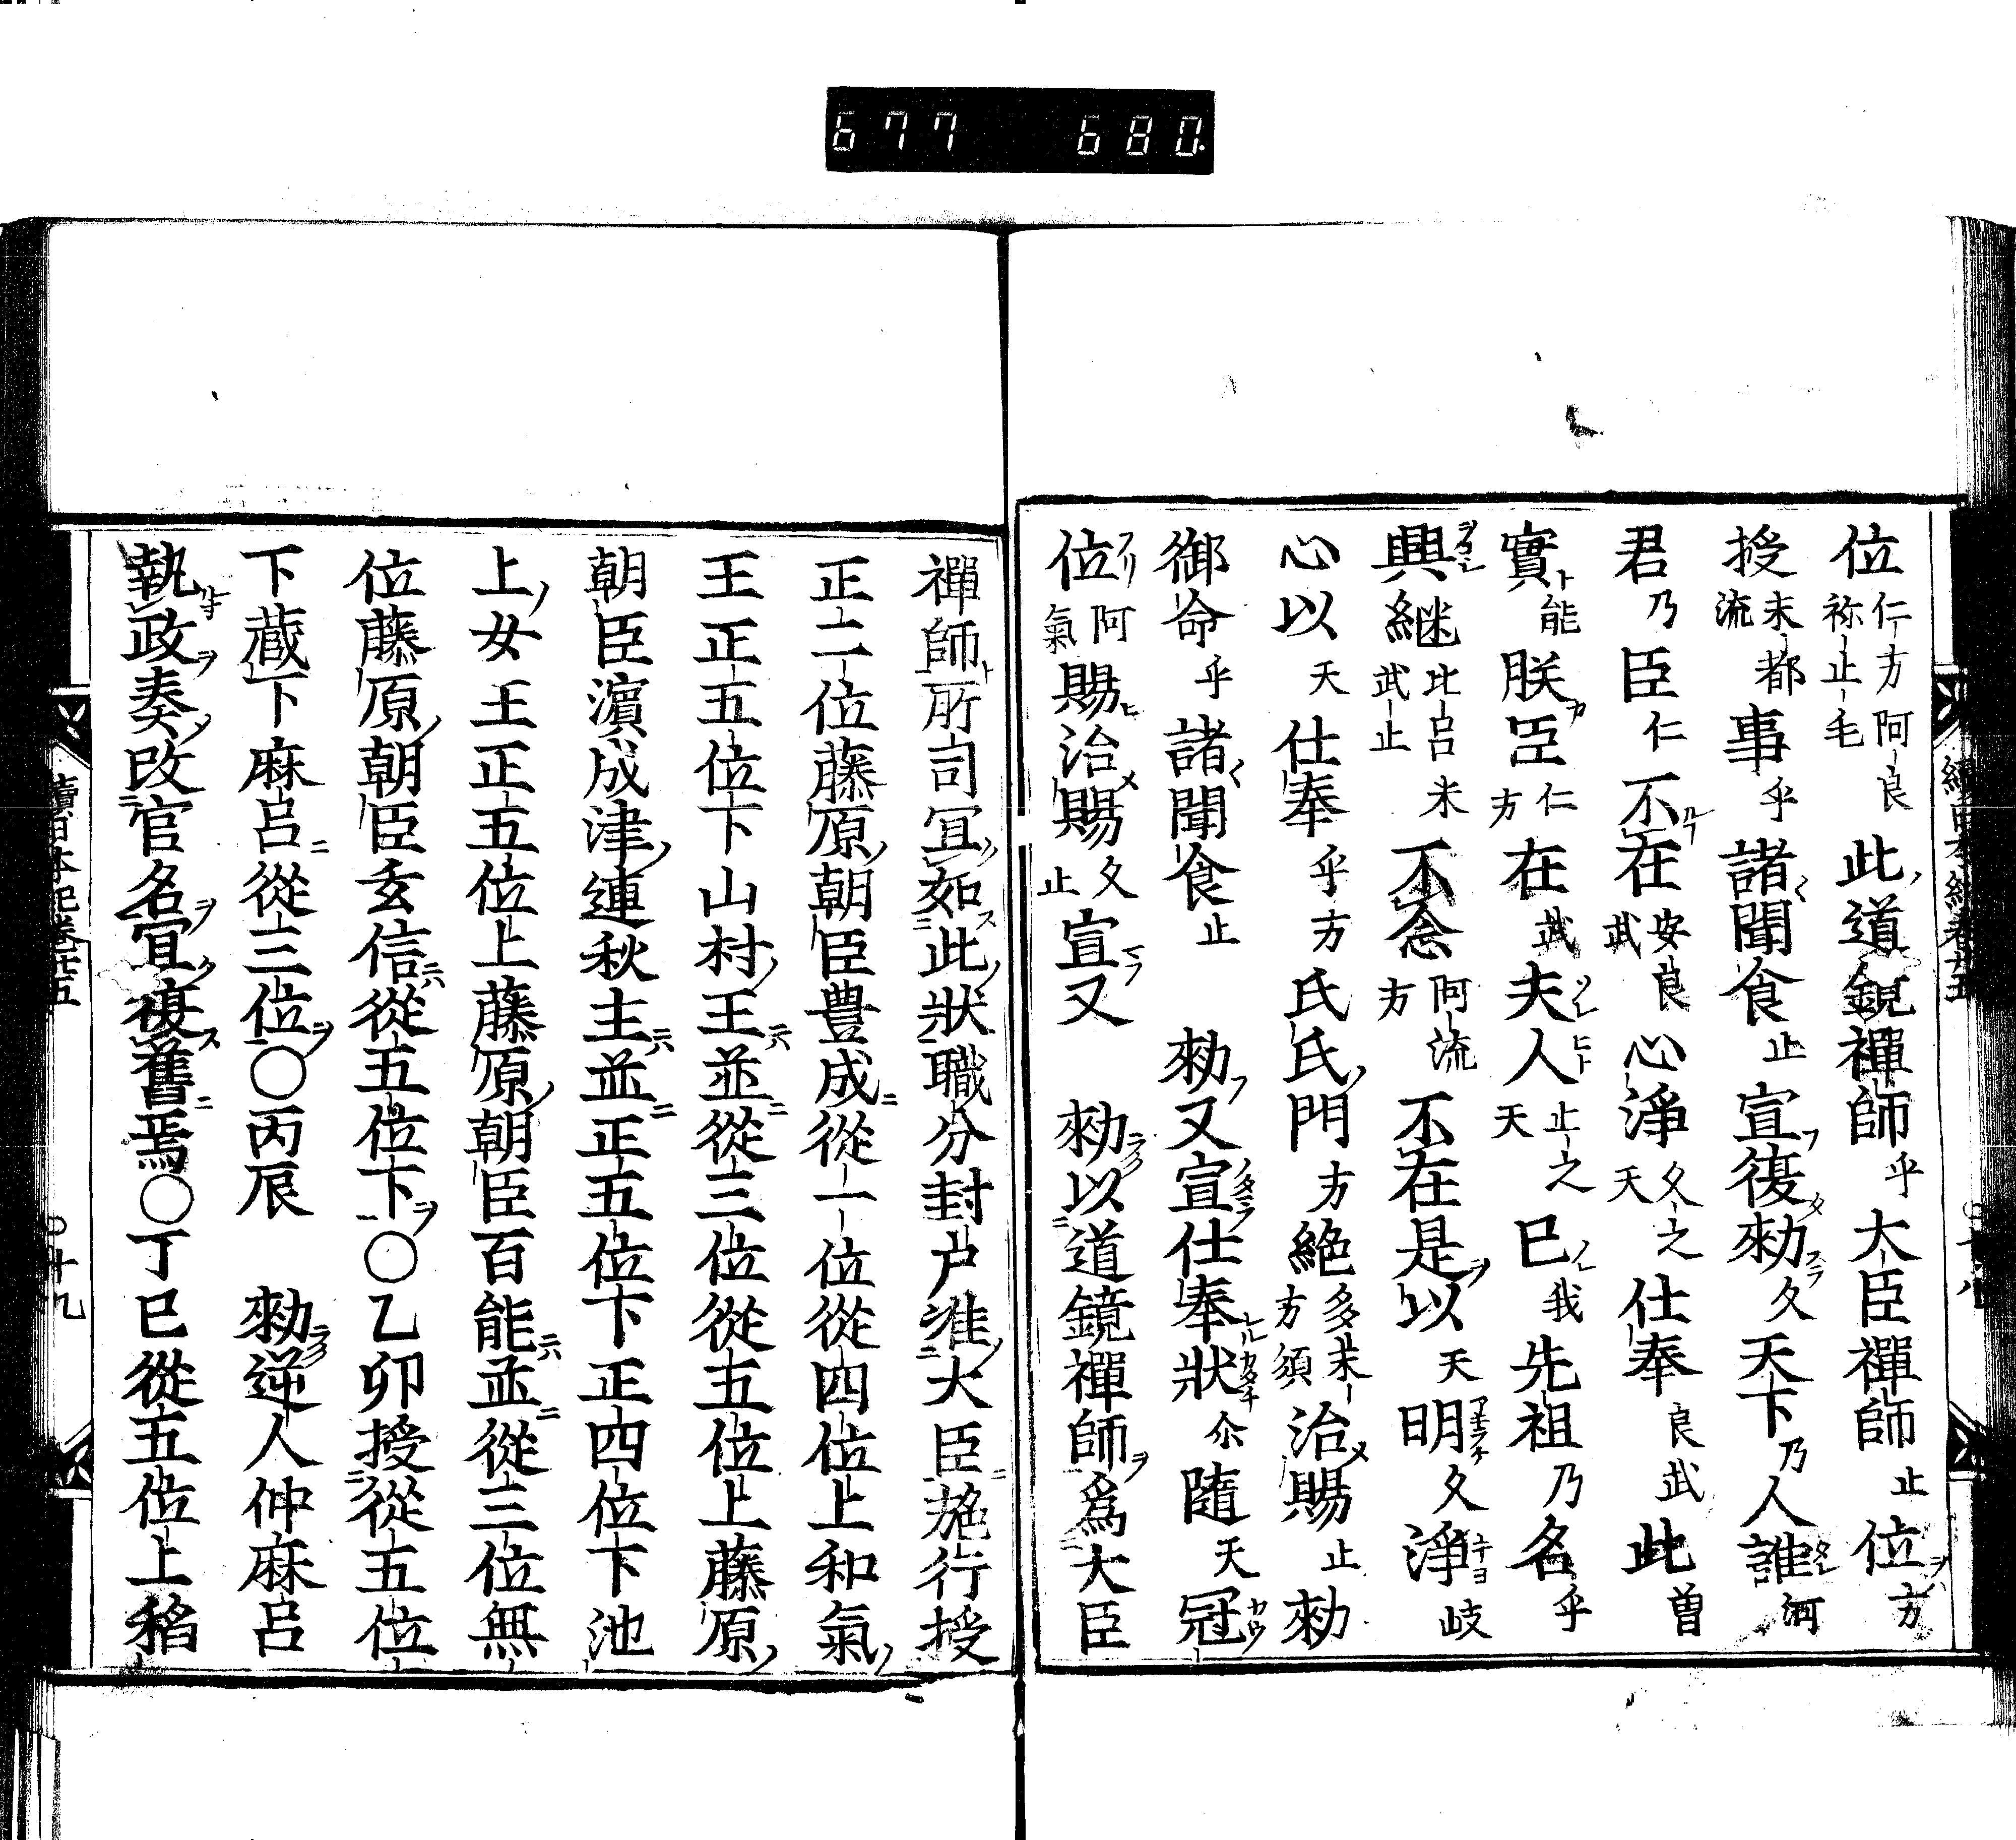 677 680.
位仁方阿良祢止毛此道鏡禪師乎大臣禪師止位方
授末都流事乎諸聞食止宣復勅久天下乃人誰河
君乃臣仁不在安良武心淨久之天仕奉良武此曽
實能朕臣仁方在武夫人止之天己我先祖乃名乎
興継比呂米武止不念阿流方不在是以天明久淨岐
心以天仕奉乎方氏氏門方絶多末方須治賜止勅
御命乎諸聞食止 勅又宣仕奉狀尓隨天冠
位阿氣賜治賜久止宣又 勅以道鏡禪師爲大臣
續日本紀卷廿五
十九
禪師所司冝如此狀職分封户准大臣施行授
正二位藤原朝臣豊成從一位從四位上和氣
王正五位下山村王並從三位從五位上藤原
朝臣濵成津連秋主並正五位下正四位下池
上女王正五位上藤原朝臣百能並從三位無
位藤原朝臣玄信從五位下○乙卯授從五位
下蔵下麻呂從三位○丙辰 勅逆人仲麻呂
執政奏改官名冝復舊焉○丁巳從五位上稻